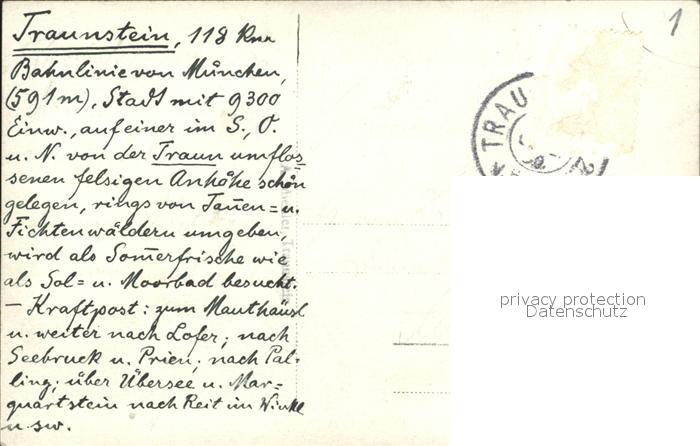 Traunstein, 118 Km
Bahnlinie von München,
(591 m), Stadt mit 9300
Einw., auf einer im S., O.
u. N. von der Traun umflos=
senen felsigen Anhöhe schön
gelegen, rings von Tan̄en= u.
Fichtenwäldern umgeben,
wird als Som̄erfrische wie
als Sol= u. Moorbad besucht.
— Kraftpost: zum Mauthäusl
u. weiter nach Lofer; nach
Seebruck u. Prien; nach Pal=
ling; über Übersee u. Mar=
quartstein nach Reit im Winkl
u. sw.
1
TRAU
privacy protection
Datenschutz